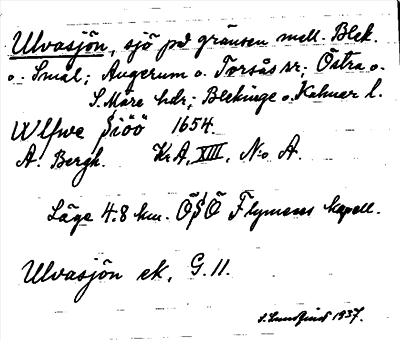 Ulvasjön, sjö på gränsen mell. Blek.
o. Smål; Augerum o. Torsås sr; Östra o.
S. Möre hdr; Blekinge o. Kalmar l.
Wlfwe Siöö 1654.
A. Bergh. K.A, XIII, N:o A.
Läge 4.8 km. ÖSÖ Flymens kapell.
Ulvasjön ek. G.11.
1937.